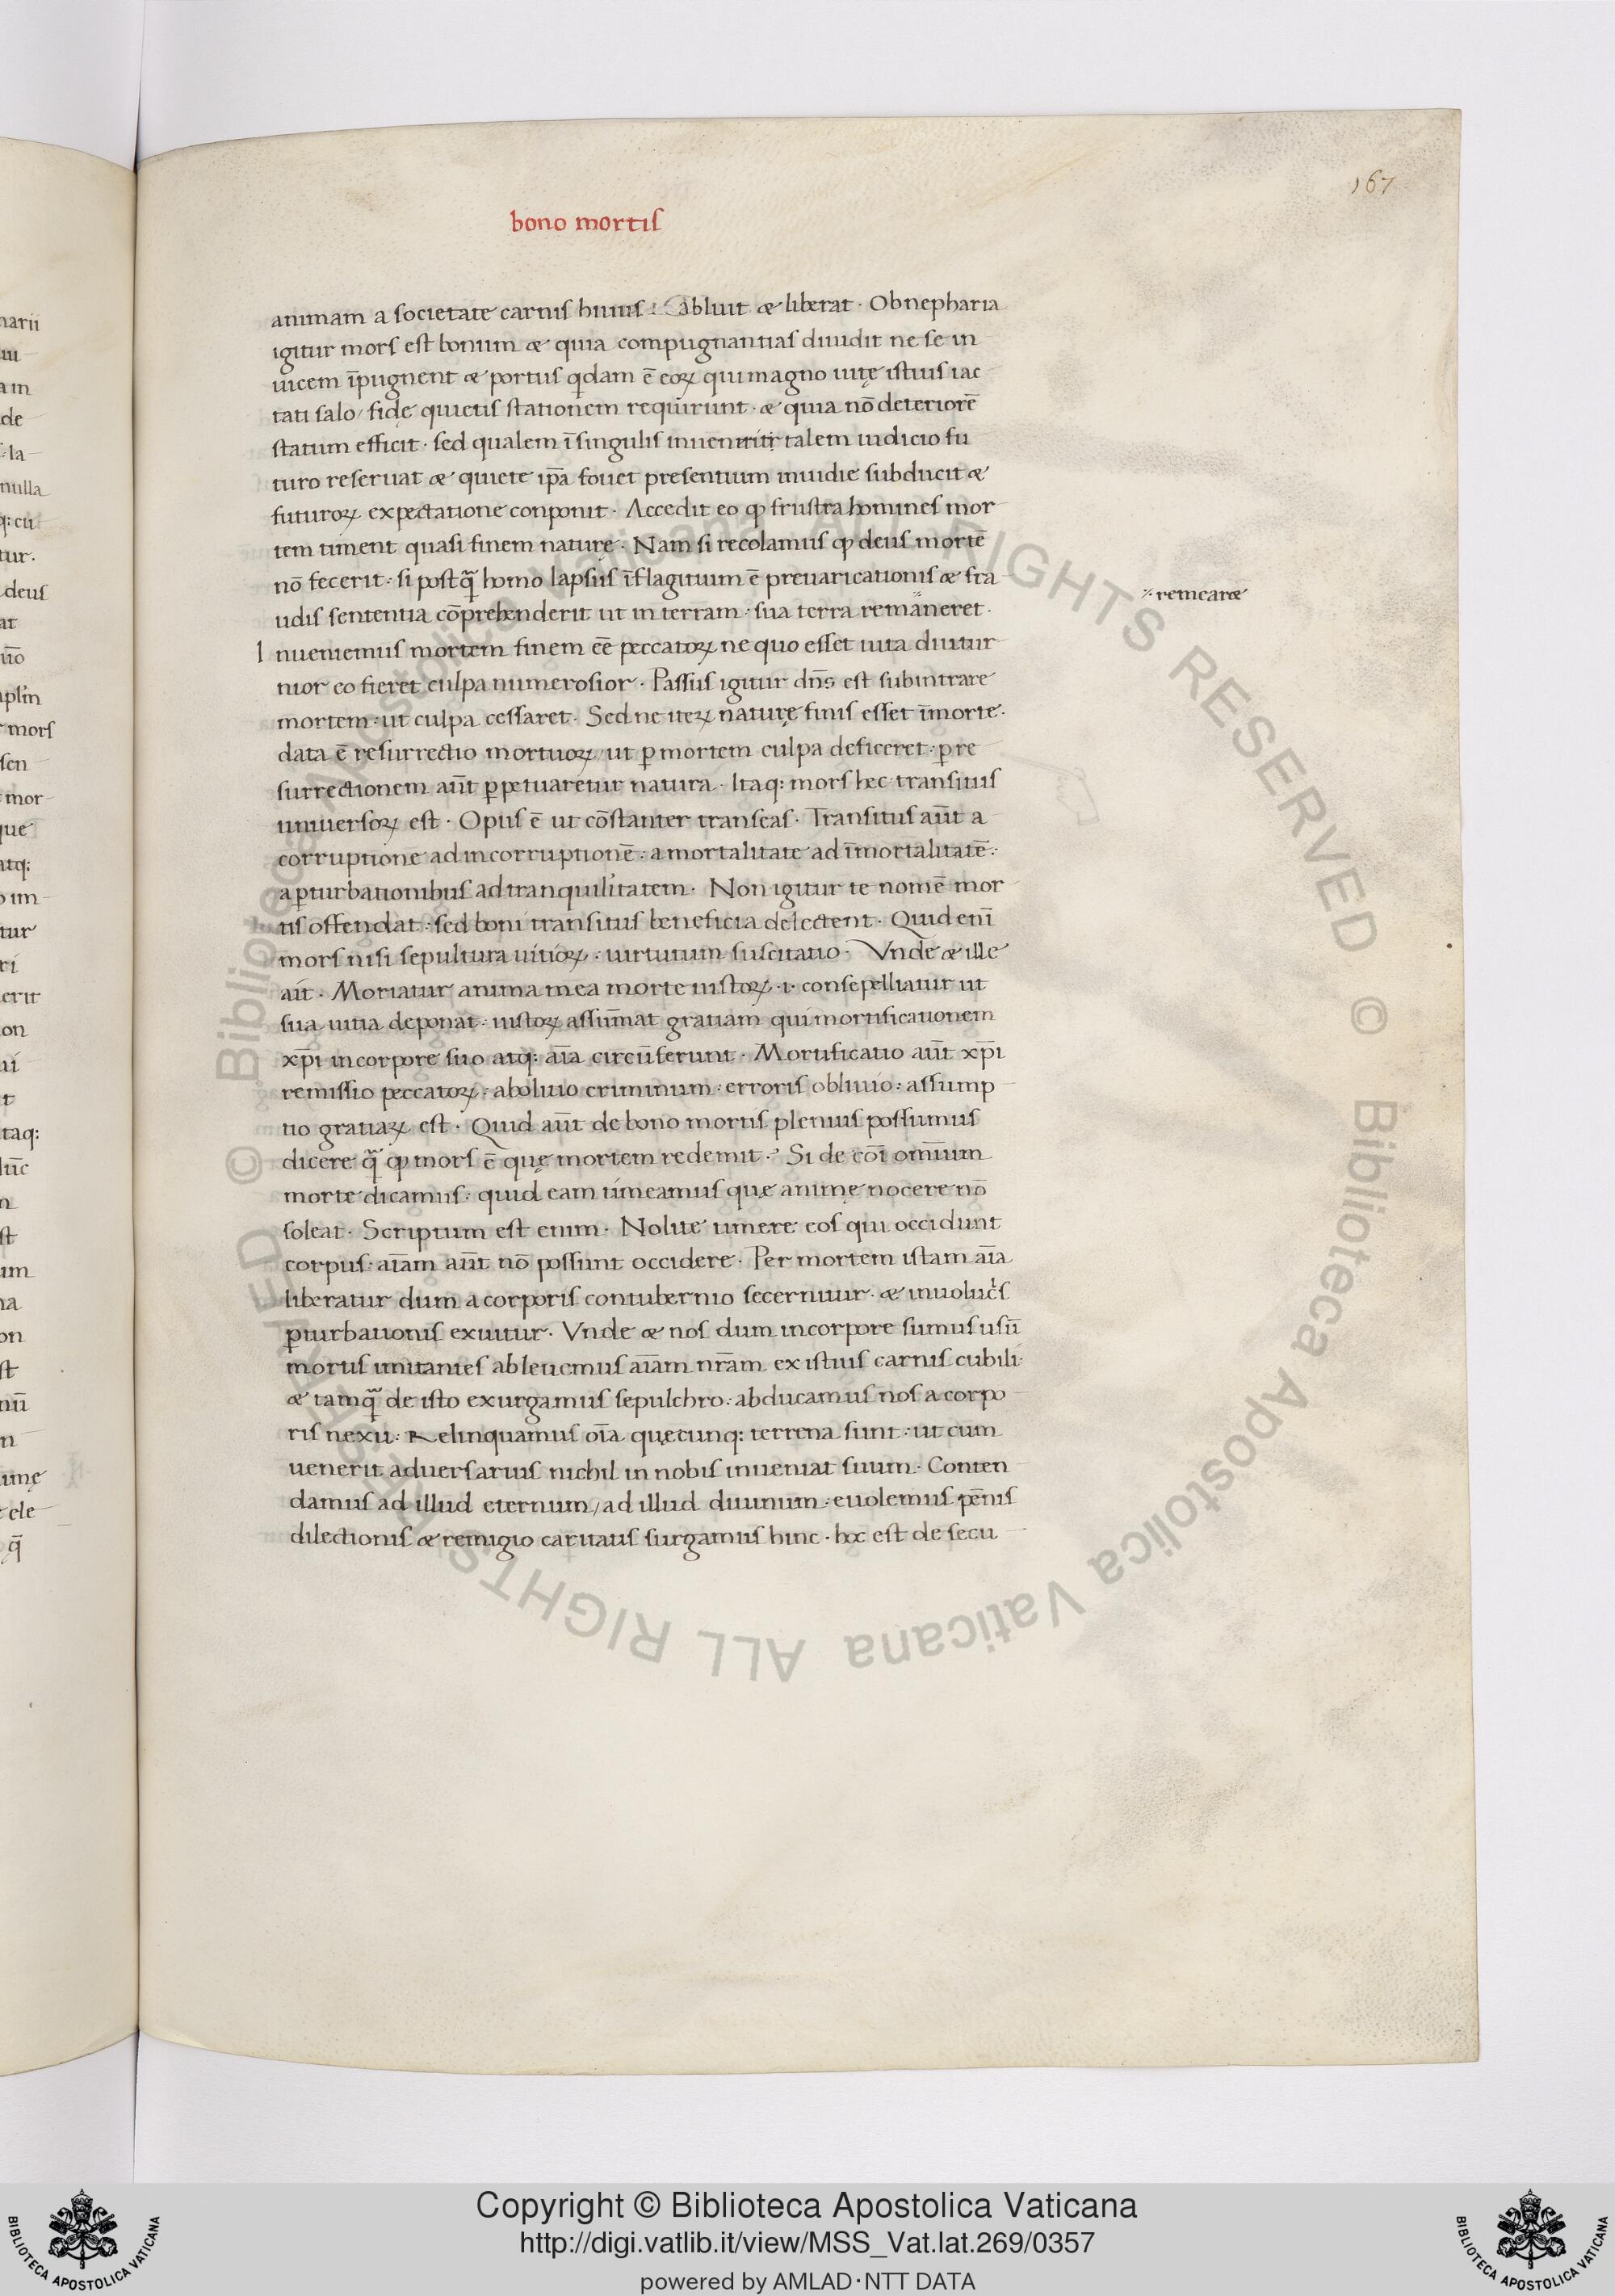 167
bono mortis
animam a societate carnis huius : abluit & liberat · Obnepharia
igitur mors est bonum & quia compugnantias diuidit ne se in
uicem īpugnent & portus qdam ē eoꝝ qui magno uitę istius iac
tati salo / fidę quietis stationem requirunt · & quia nō deteriorē
statum efficit · sed qualem ī singulis talem iudicio fu
turo reseruat & quiete ip̄a fouet presentium inuidie subducit &
futuroꝝ expectatione conponit · Accedit eo ꝙ frustra homines mor
tem timent quasi finem naturę · Nam si recolamus ꝙ deus mortē
nō fecerit : si postq̄ homo lapsus ī flagitium ē preuaricationis & fra
udis sententia cōprehenderit ut in terram · sua terra remaneret ·
⁒ remear&
I nueniemus mortem finem eē peccatoꝝ ne quo esset uita diutur
nior eo fieret culpa numerosior · Passus igitur dn̄s est subintrare
mortem · ut culpa cessaret · Sed ne iteꝝ naturę finis esset ī morte ·
data ē resurrectio mortuoꝝ / ut ꝑ mortem culpa deficeret · ꝑ re
surrectionem aūt ꝑpetuaretur natura · Itaq: mors hec transitus
uniuersoꝝ est · Opus ē ut cōstanter transeas · Transitus aūt a
corruptione ad incorruptionē : a mortalitate ad īmortalitatē :
a ꝑturbationibus ad tranquilitatem · Non igitur te nomē mor
tis offendat : sed boni transitus beneficia delectent · Quid enī
mors nisi sepultura uitioꝝ : uirtutum suscitatio · Vnde & ille
ait · Moriatur anima mea morte iustoꝝ · i · consepelliatur ut
sua uitia deponat : iustoꝝ assūmat gratiam qui mortificationem
xp̄i in corpore suo atq: aīa circūferunt · Mortificatio aūt xp̄i
remissio peccatoꝝ : abolitio criminum : erroris obliuio : assump
tio gratiaꝝ est · Quid aūt de bono mortis plenius possumus
dicere q̄ ꝙ mors ē quę mortem redemit · Si de cōi omnīum
morte dicamus : quid eam timeamus quę animę nocere nō
soleat · Scriptum est enim · Nolite timere eos qui occidunt
corpus · aīam aūt nō possunt occidere · Per mortem istam aīa
liberatur dum a corporis contubernio secernitur · & inuolucis
ꝑturbationis exuitur · Vnde & nos dum in corpore sumus usū
mortis imitantes ableuemus aīam nr̄am ex istius carnis cubili ·
& tamq̄ de isto exurgamus sepulchro : abducamus nos a corpo
ris nexu · Relinquamus oīa quęcunq: terrena sunt · ut cum
uenerit aduersarius nichil in nobis inueniat suum · Conten
damus ad illud eternum / ad illud diuinum : euolemus pēnis
dilectionis & remigio caritatis surgamus hinc · hoc est de secu
© Biblioteca Apostolica Vaticana ALL RIGHTS RESERVED © Biblioteca Apostolica Vaticana ALL RIGHTS RESERVED
Copyright © Biblioteca Apostolica Vaticana
http://digi.vatlib.it/view/MSS_Vat.lat.269/0357
powered by AMLAD·NTT DATA
BIBLIOTECA APOSTOLICA VATICANA
BIBLIOTECA APOSTOLICA VATICANA